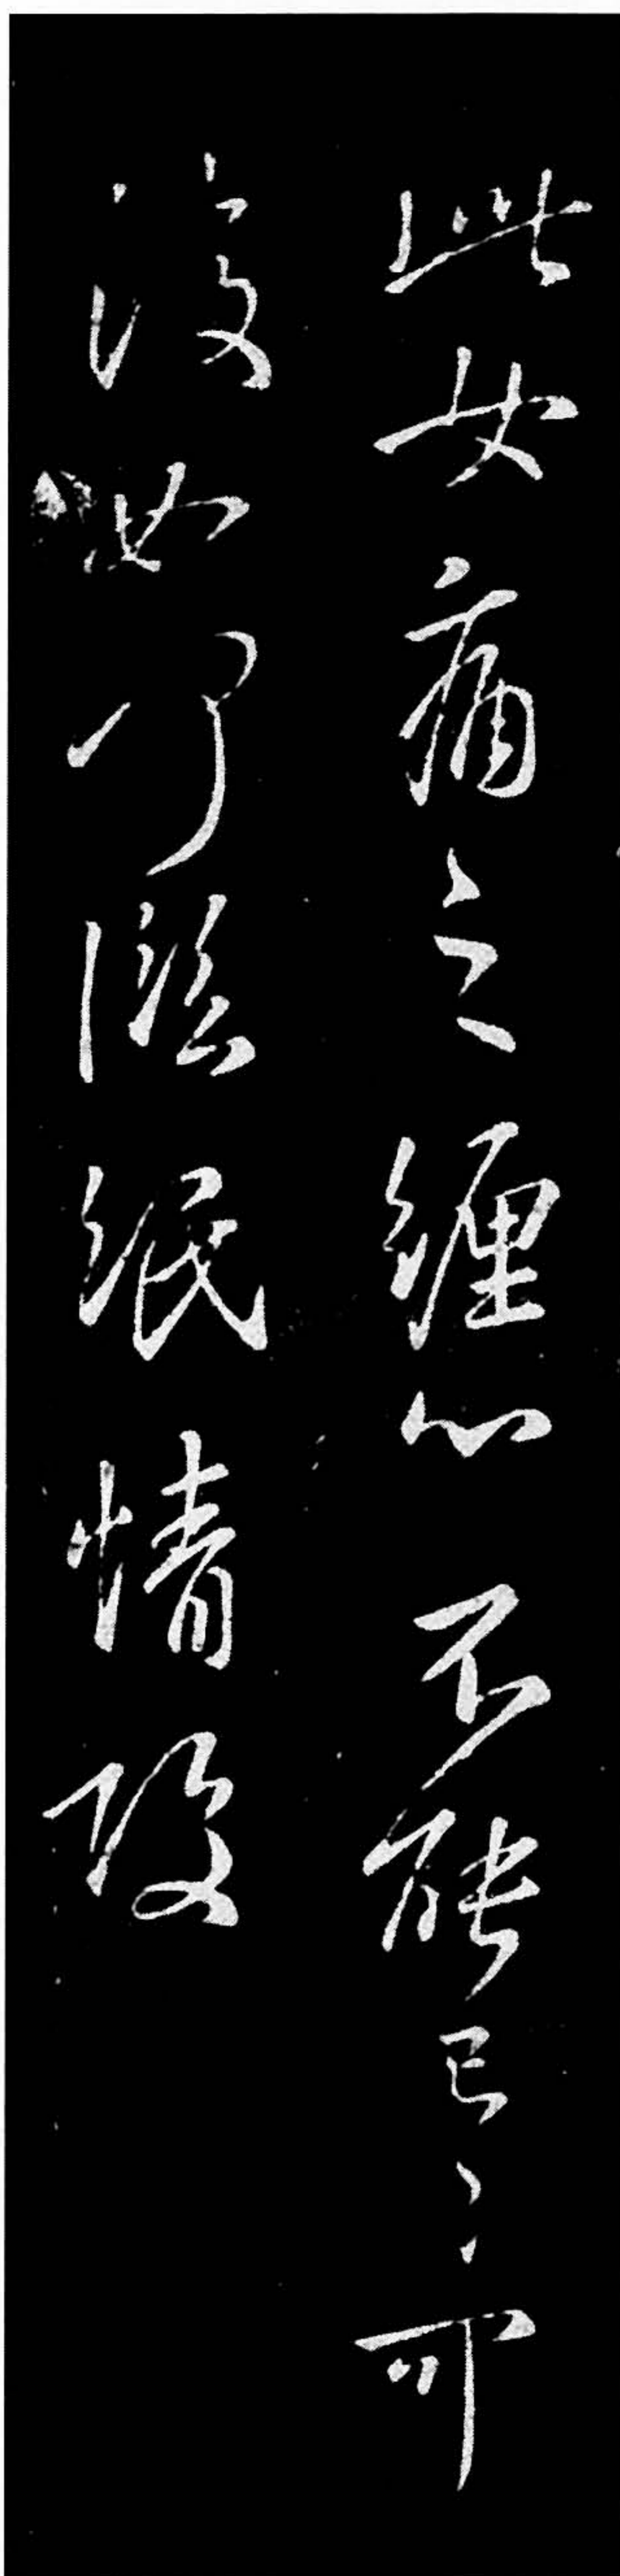 此女痛之纏心不能已已可
復如何臨紙情酸